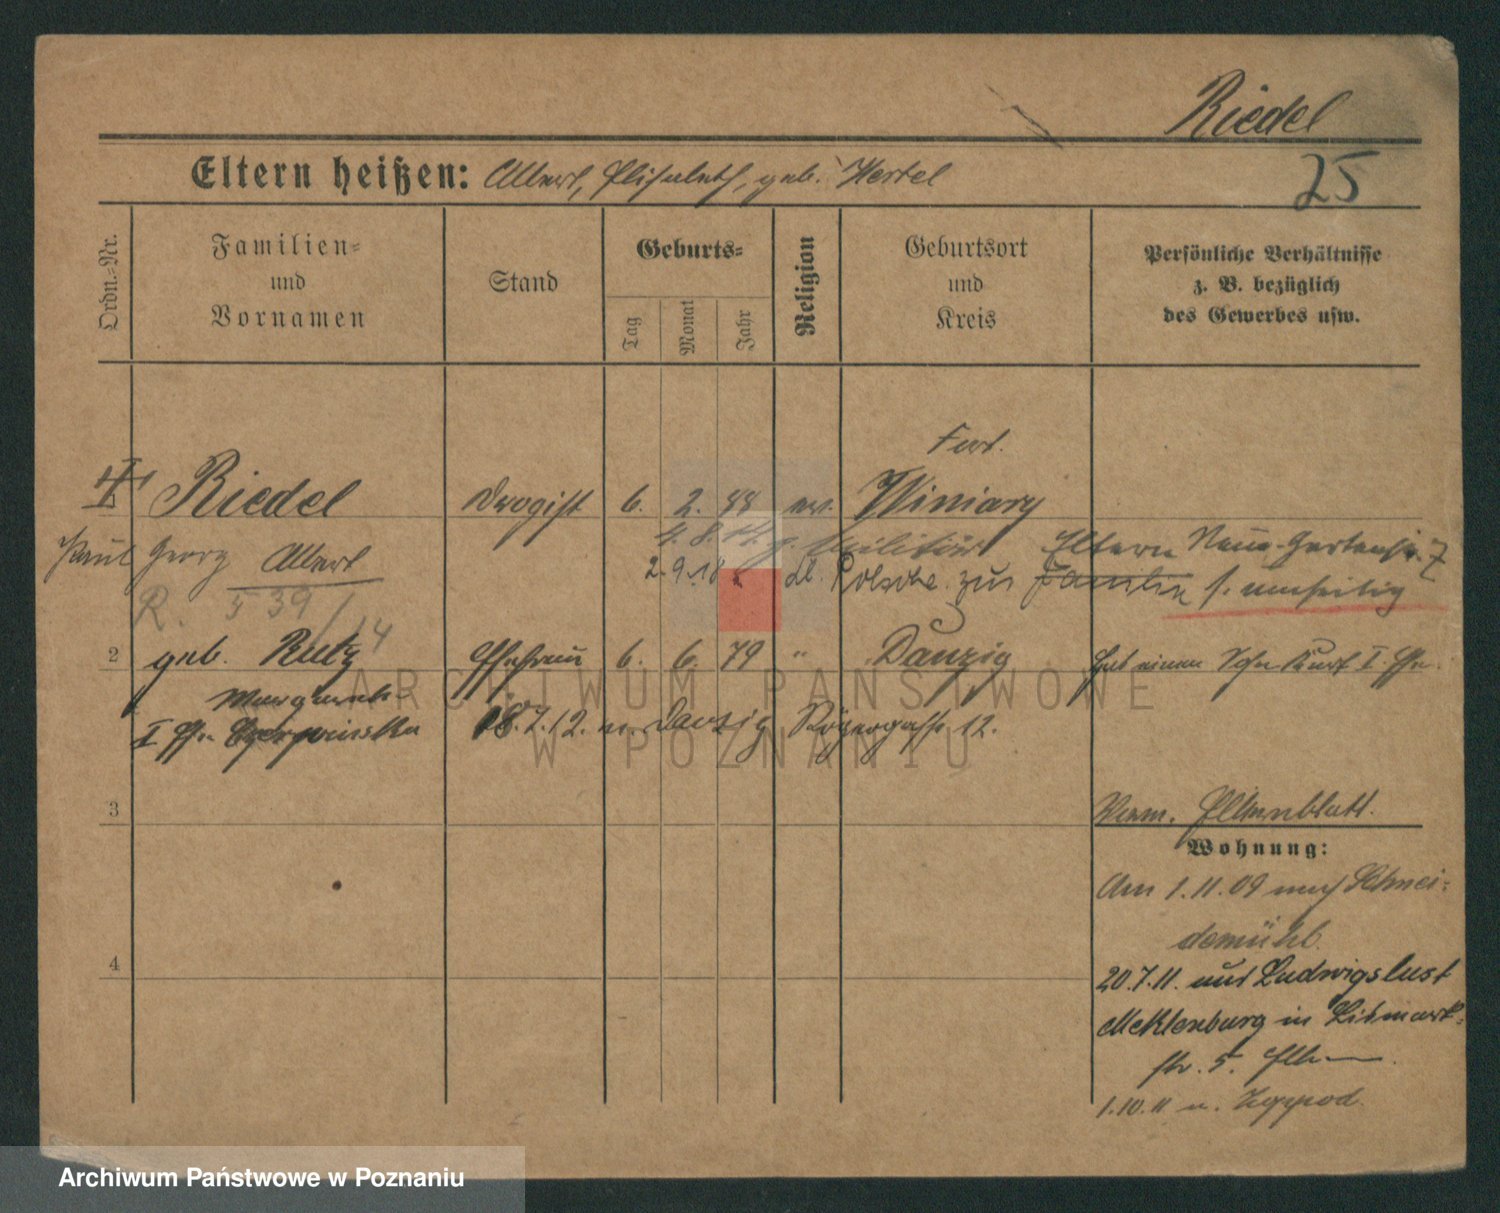 Riedel
Eltern heißen: Albert, Elisabeth, geb. Hertel
25
Ordn.-Nr.
Familien-
und
Vornamen
Stand
Geburts-
Tag
Monat
Jahr
Religion
Geburtsort
und
Kreis
Persönliche Verhältnisse
z. B. bezüglich
des Gewerbes usw.
Fort
1 Riedel Drogist 6. 2. 88 ev. Winiary
Paul Georg Albert 4. 8. 14 z. Militär Eltern Neue Gartenstr. 7
2.9.18 zur Familie s. umseitig
R. 539/14
2 geb. Rutz Ehefrau 6. 6. 79 " Danzig Hat einen Sohn Kurt I. Ehe.
Margarete
I Ehe 18.7.12. n. Danzig 12.
3
Verm. Elternblatt.
Wohnung:
Am 1.11.09 nach Schnei-
demühl.
4
20.7.11. aus Ludwigslust
Meklenburg in Bismark-
str. 5. Elt
1.10.11 n. Zoppod.
ARCHIWUM PAŃSTWOWE
W POZNANIU
Archiwum Państwowe w Poznaniu